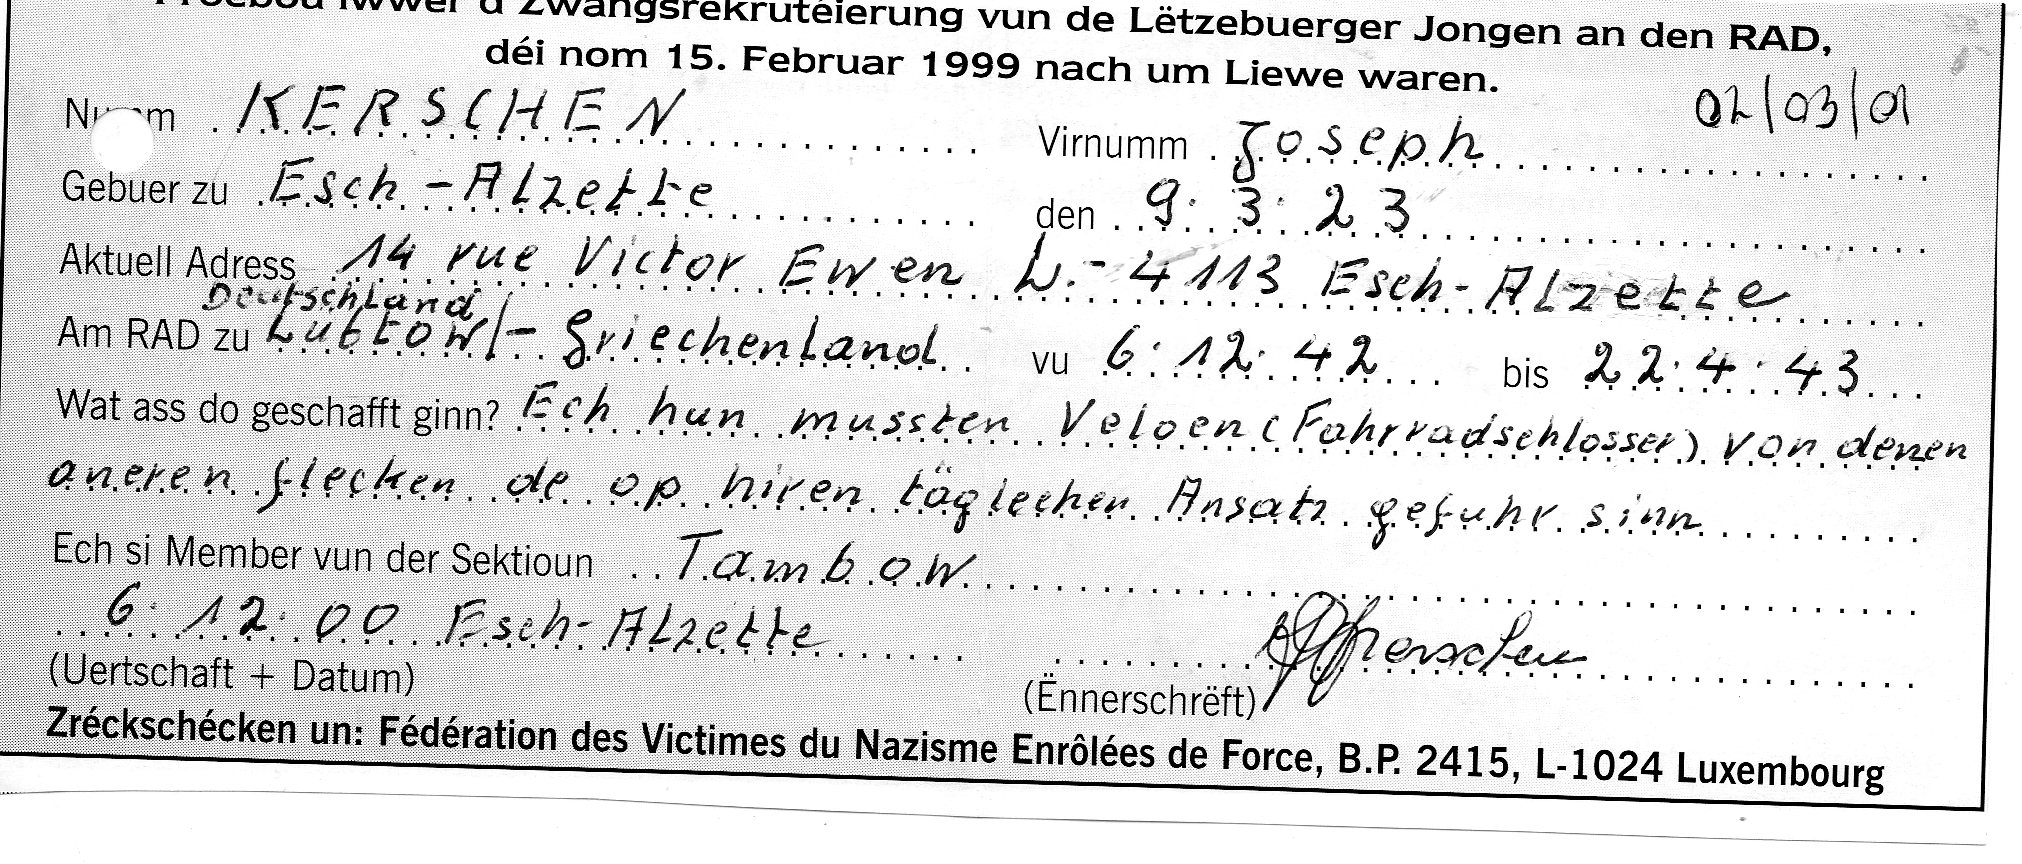 iwwer d'Zwangsrekrutéierung vun de Lëtzebuerger Jongen an den RAD,
déi nom 15. Februar 1999 nach um Liewe waren.
02/03/01
Numm KERSCHEN Virnumm Joseph
Gebuer zu Esch-Alzette den 9.3.23
Aktuell Adress 14 rue Victor Ewen L.-4113 Esch-Alzette
Deutschland
Am RAD zu Lubtow/-Griechenland vu 6.12.42 bis 22.4.43
Wat ass do geschafft ginn? Ech hun mussten Veloen (Fahrradschlosser) von denen
aneren flecken de op hiren täglechen Ansatz gefuhr sinn
Ech si Member vun der Sektioun Tambow
6.12.00 Esch-Alzette Kerschen
(Uertschaft + Datum) (Ënnerschrëft)
Zréckschécken un: Fédération des Victimes du Nazisme Enrôlées de Force, B.P. 2415, L-1024 Luxembourg